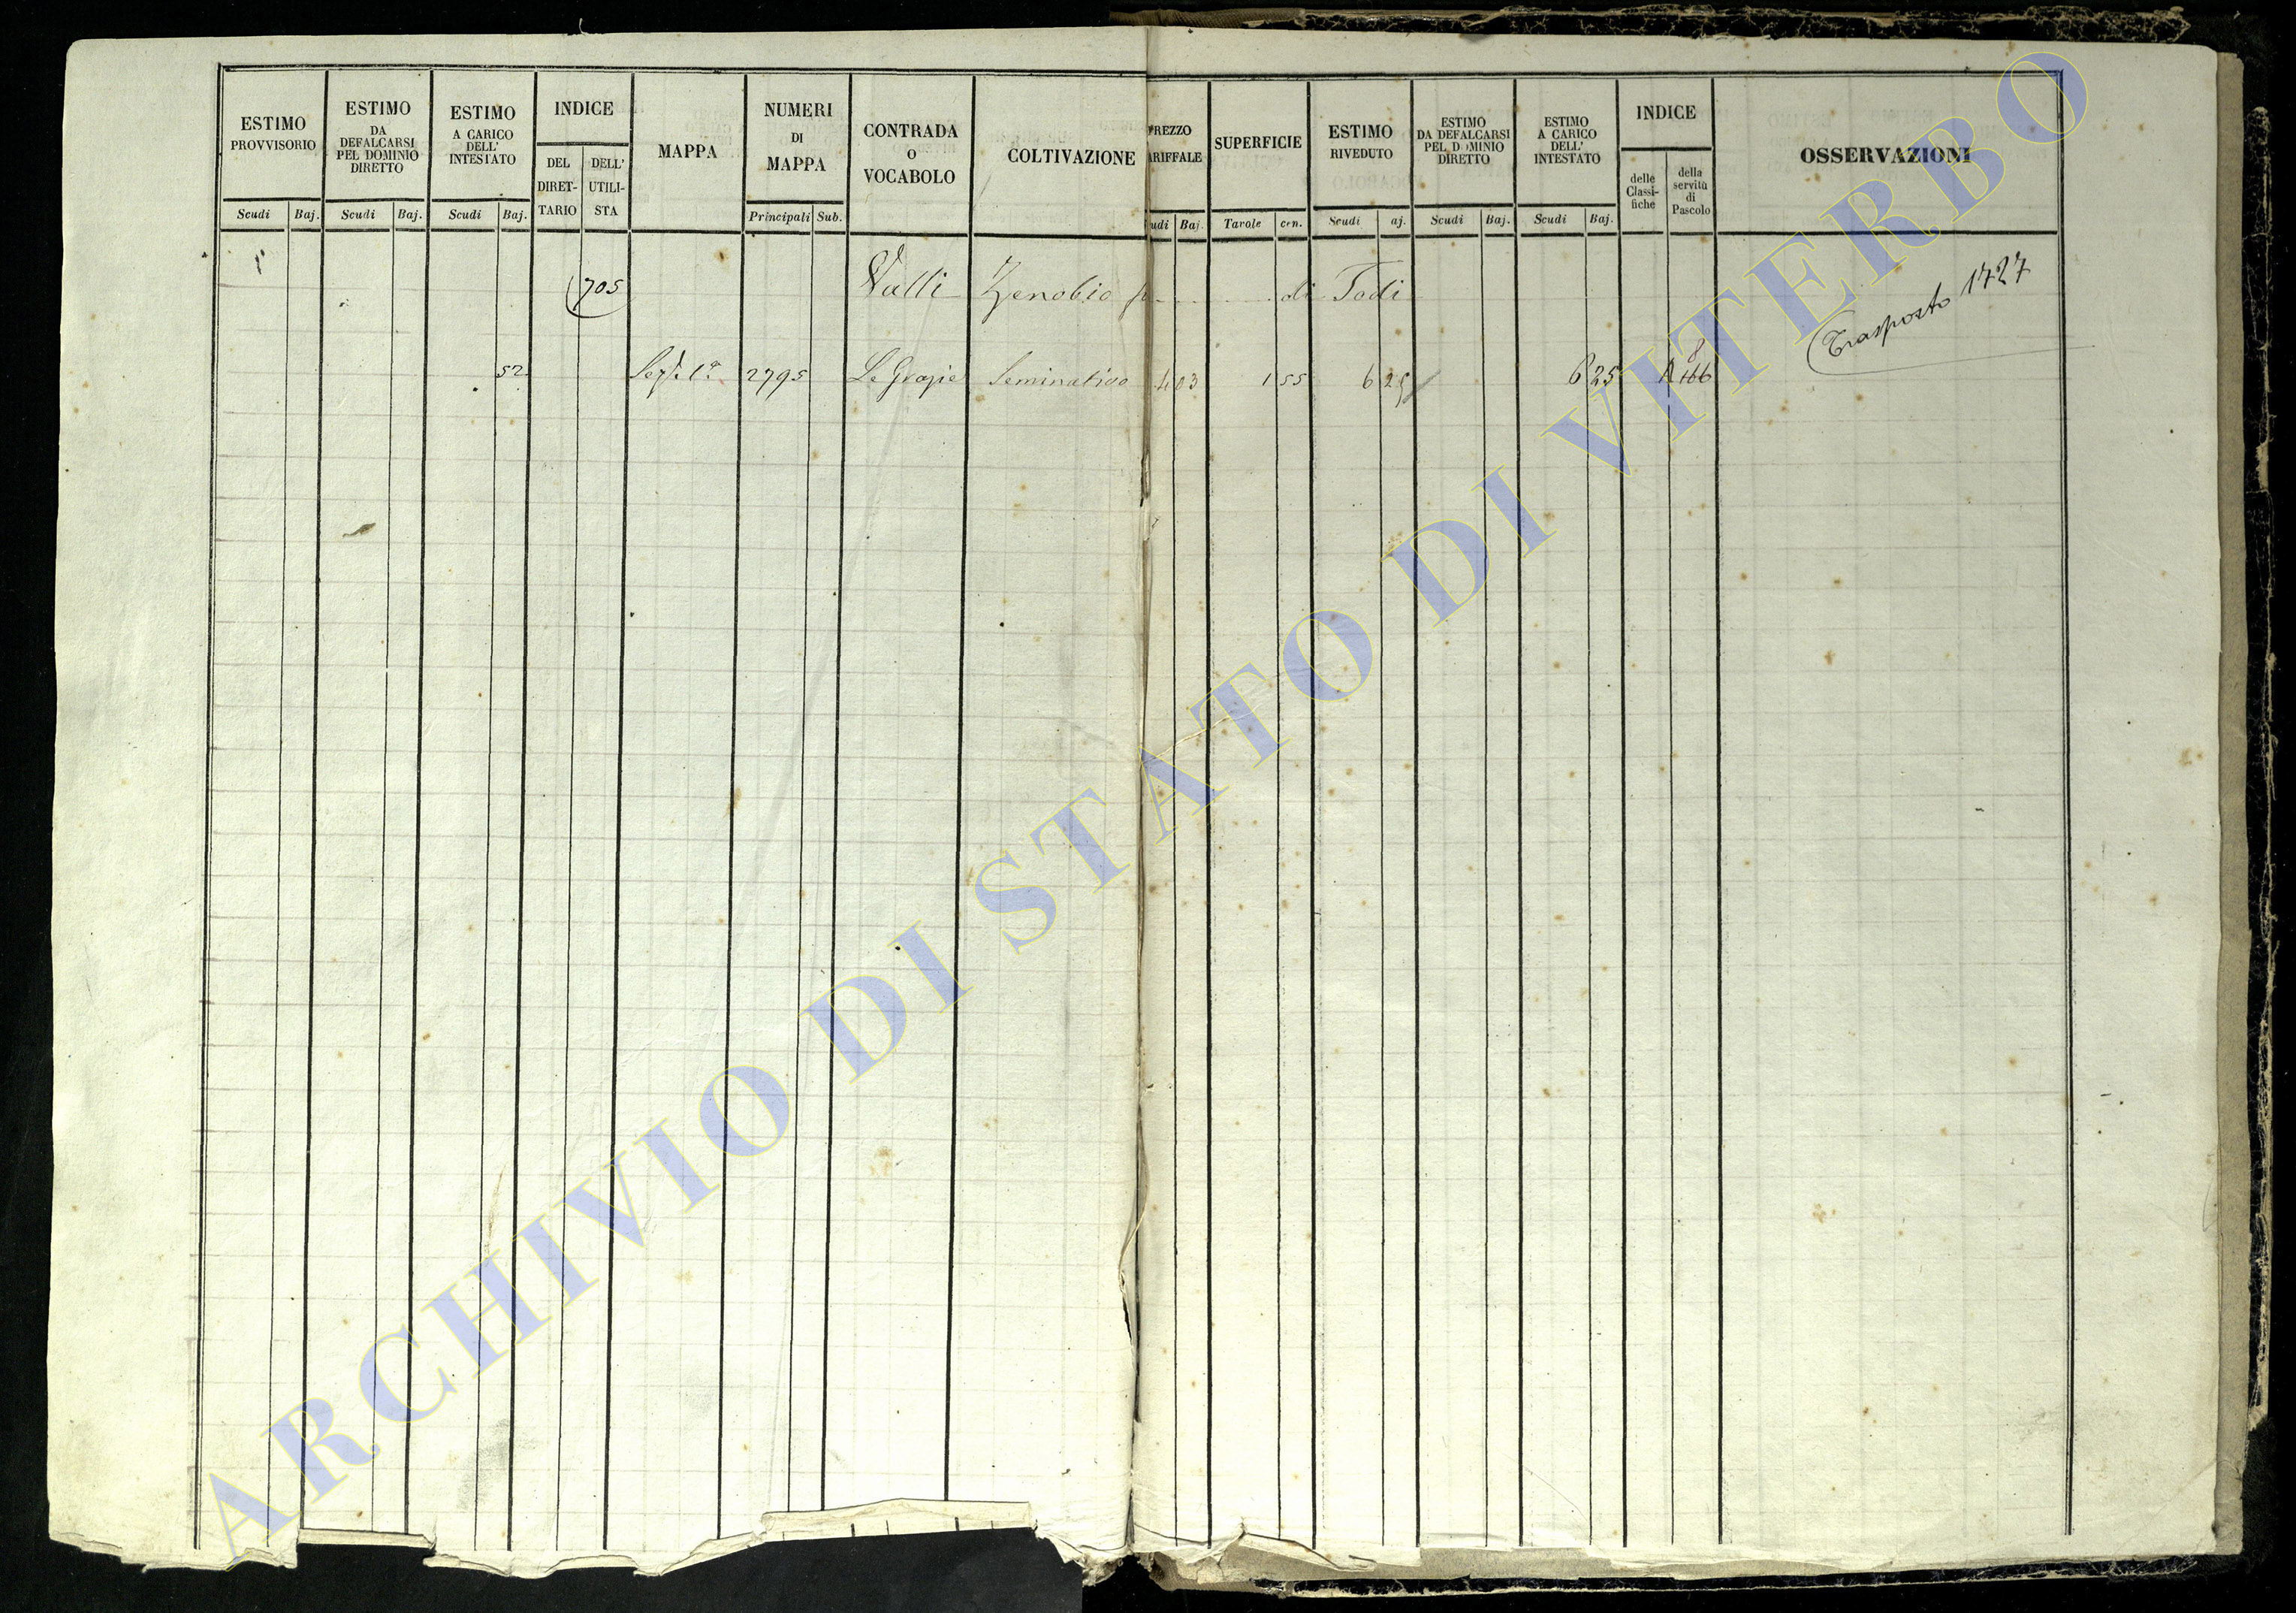 ESTIMO PROVVISORIO
Scudi Baj.
ESTIMO DA DEFALCARSI PEL DOMINIO DIRETTO
Scudi Baj.
ESTIMO A CARICO DELL' INTESTATO
Scudi Baj.
INDICE
DEL DIRET-TARIO
DELL' UTILI-STA
MAPPA
NUMERI DI MAPPA
Principali Sub.
CONTRADA O VOCABOLO
COLTIVAZIONE
PREZZO
ARIFFALE
udi Baj.
SUPERFICIE
Tavole cen.
ESTIMO RIVEDUTO
Scudi aj.
ESTIMO DA DEFALCARSI PEL DOMINIO DIRETTO
Scudi Baj.
ESTIMO A CARICO DELL' INTESTATO
Scudi Baj.
INDICE
delle Classi-fiche
della servitù di Pascolo
OSSERVAZIONI
705 Valli Zenobio di Todi
Trasposto 1727
52 Sez. 1a 2795 Le Grazie Seminativo 4 03 1 55 6 25 6 25 A 166
8
ARCHIVIO DI STATO DI VITERBO